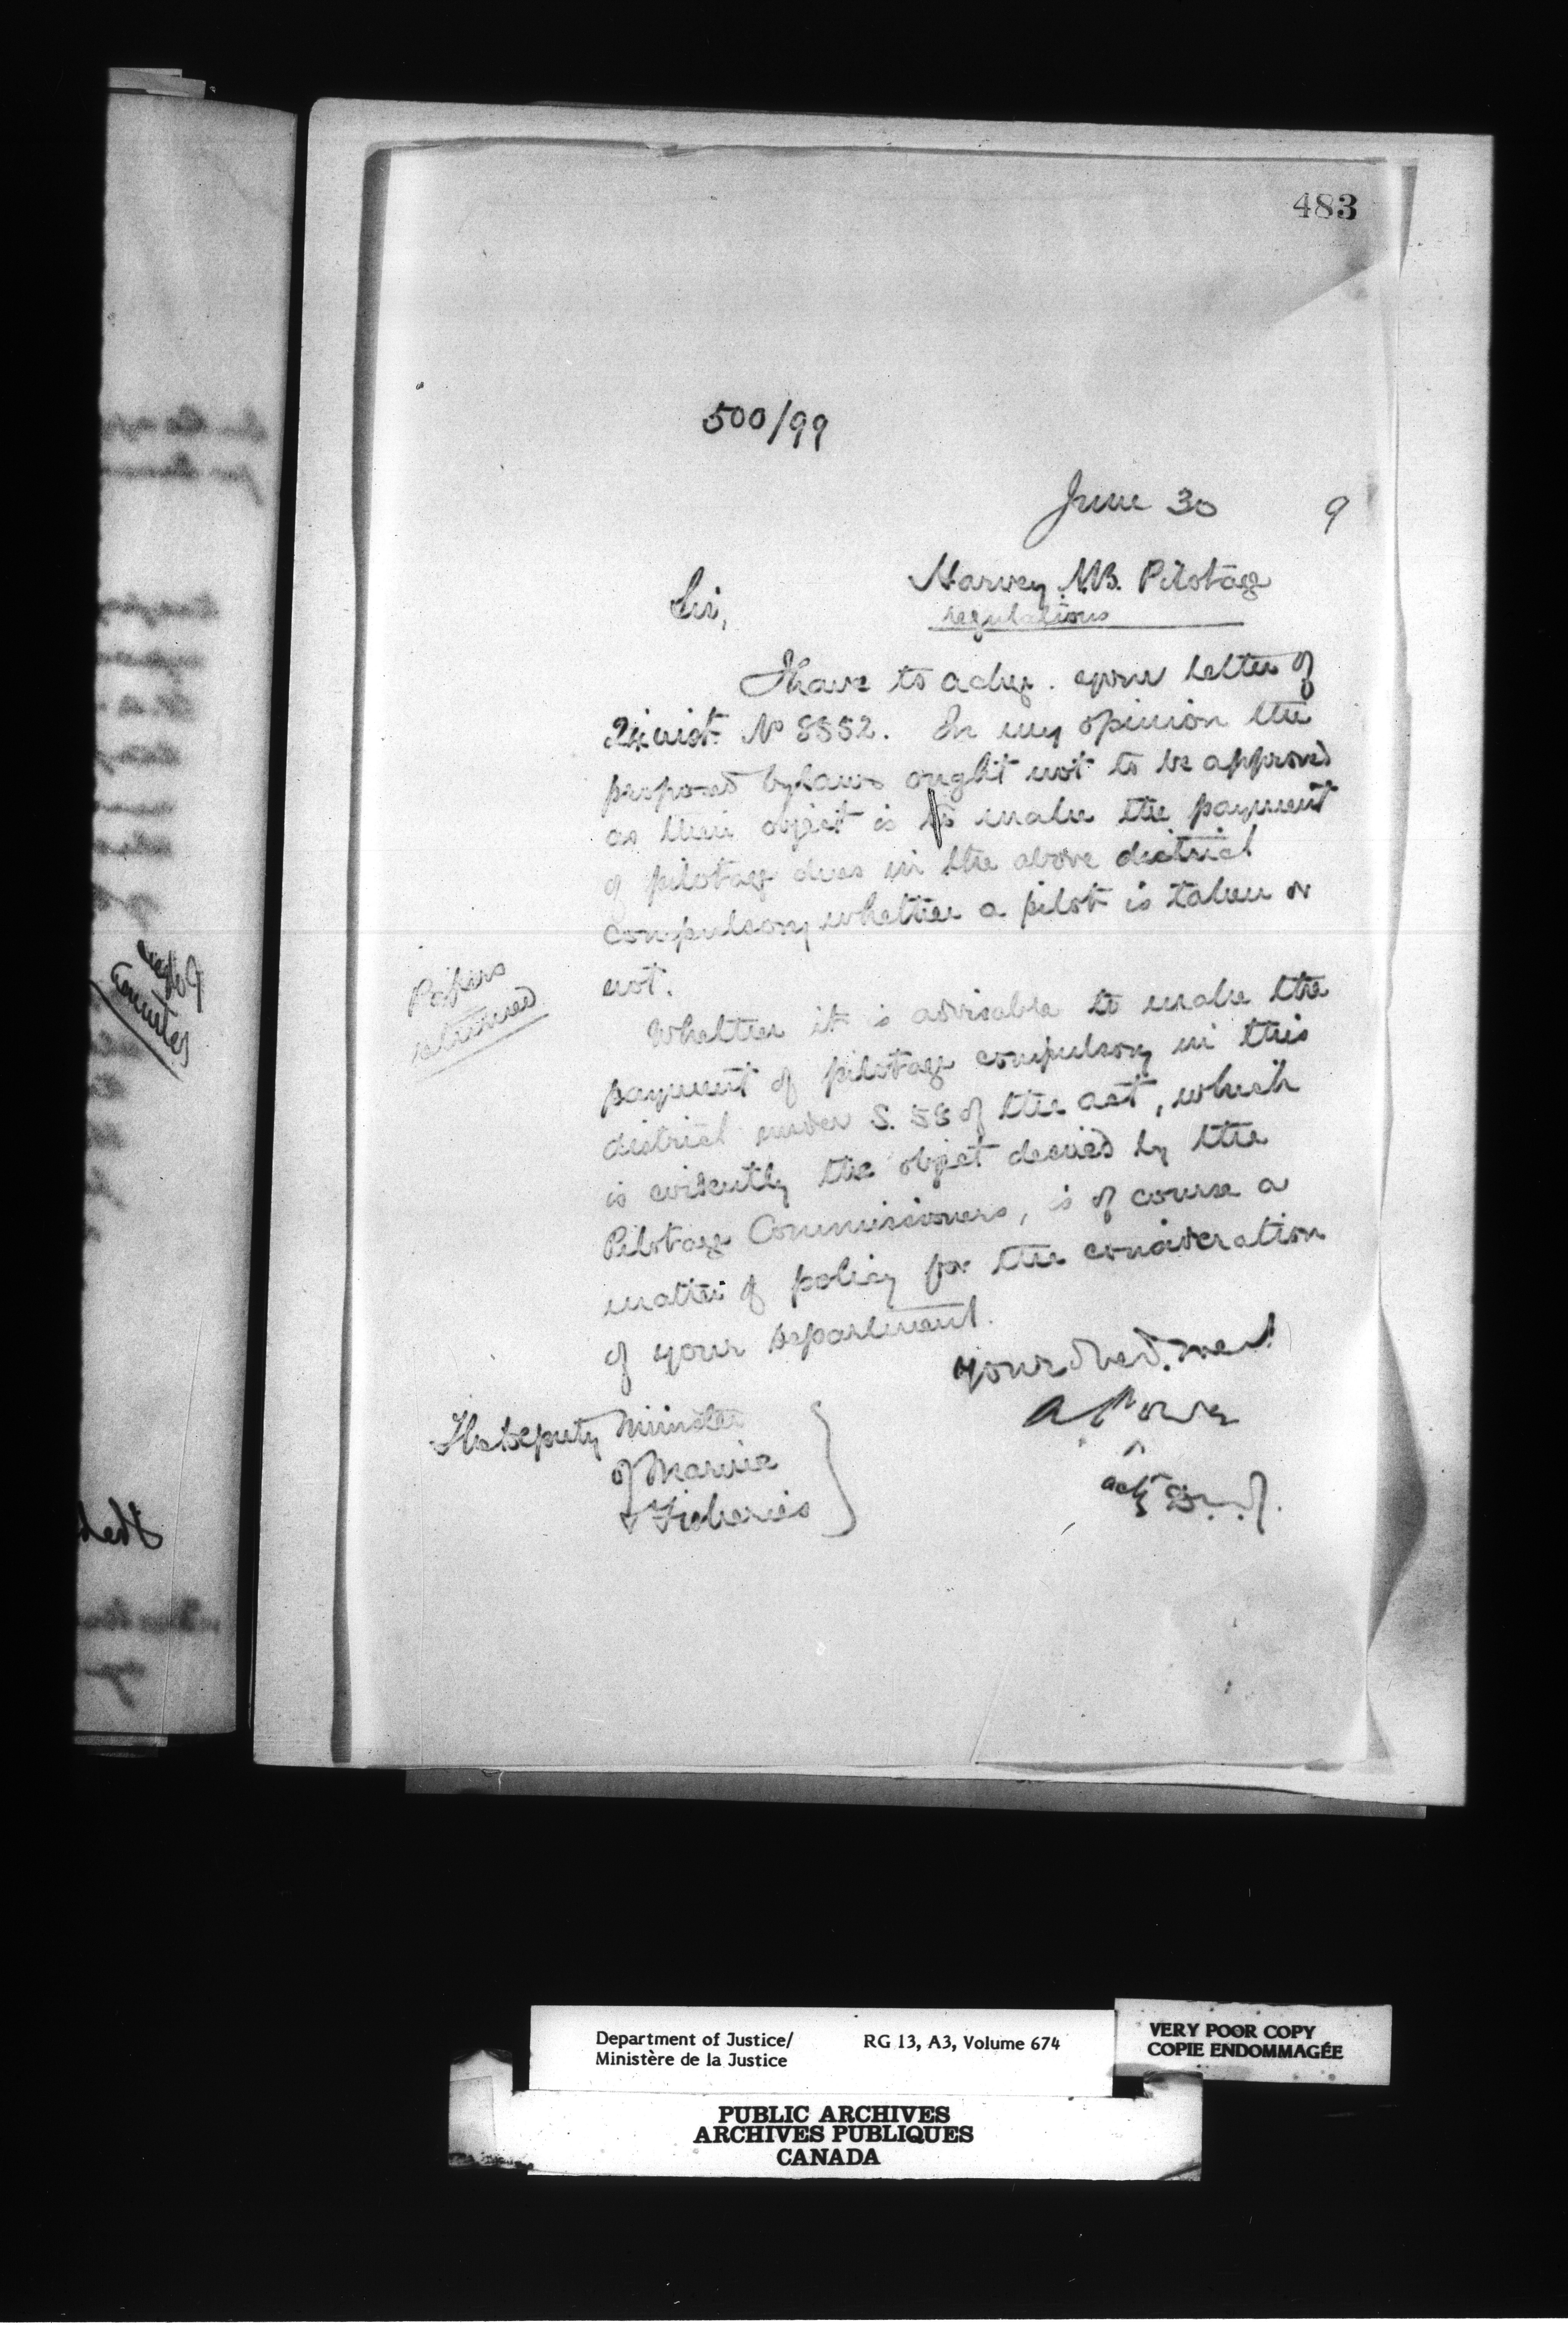 483
500/99
June 30 9
Harvey N.B. Pilotage
regulations
Sir,
I have to ackge. your letter of
24 inst. No 8552. In my opinion the
proposed bylaws ought not to be approved
as their object is to make the payment
of pilotage dues in the above district
compulsory whether a pilot is taken or
not.
Papers
returned
Whether it is advisable to make the
payment of pilotage compulsory in this
district under S. 58 of the act, which
is evidently the object desired by the
Pilotage Commissioners, is of course a
matter of policy for the consideration
of your department.
your obed. servt
A Power
actg D.M.J.
The Deputy Minister
of Marine
& Fisheries
Department of Justice/
Ministère de la Justice
RG 13, A3, Volume 674
VERY POOR COPY
COPIE ENDOMMAGÉE
PUBLIC ARCHIVES
ARCHIVES PUBLIQUES
CANADA